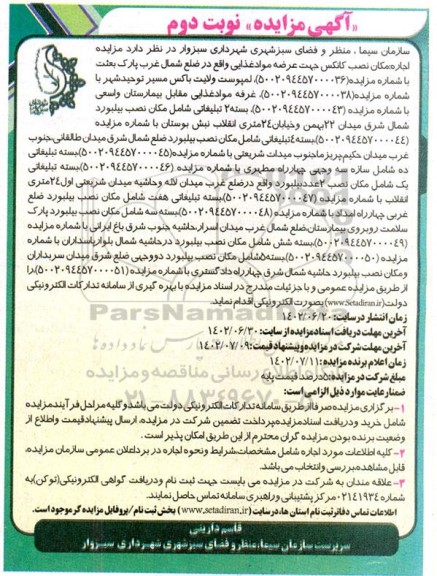 «آگهی مزایده» نوبت دوم
سازمان سیما ، منظر و فضای سبزشهری شهرداری سبزوار در نظر دارد مزایده
اجاره:مکان نصب کانکس جهت عرضه موادغذایی واقع در ضلع شمال غرب پارک بعثت
با شماره مزایده(۵۰۰۲۰۹۴۴۵۷۰۰۰۰۳۶)، لمپوست ولایت باکس مسیر توحیدشهر با
شماره مزایده(۵۰۰۲۰۹۴۴۵۷۰۰۰۰۳۸)، غرفه موادغذایی مقابل بیمارستان واسعی
با شماره مزایده (۵۰۰۲۰۹۴۴۵۷۰۰۰۰۴۳) بسته۲ تبلیغاتی شامل مکان نصب بیلبورد
شمال شرق میدان ۲۲بهمن وخیابان۲۴متری انقلاب نبش بوستان با شماره مزایده
(۵۰۰۲۰۹۴۴۵۷۰۰۰۰۴۴)،بسته۴تبلیغاتی شامل مکان نصب بیلبورد ضلع شمال شرق میدان طالقانی،جنوب
غرب میدان حکیم،پریزماجنوب میدات شریعتی با شماره مزایده(۵۰۰۲۰۹۴۴۵۷۰۰۰۰۴۵)،بسته تبلیغاتی
ده شامل سازه سه وجهی چهارراه بیهقی با شماره مزایده (۵۰۰۲۰۹۴۴۵۷۰۰۰۰۴۶)بسته تبلیغاتی
یک شامل مکان نصب ۲عددبیلبورد واقع درضلع غرب میدان لاله وحاشیه میدان شریعتی اول۲۴متری
انقلاب با شماره مزایده (۵۰۰۲۰۹۴۴۵۷۰۰۰۰۴۷)،بسته تبلیغاتی هفت شامل مکان نصب بیلبورد ضلع
غربی چهارراه امداد با شماره مزایده (۵۰۰۲۰۹۴۴۵۷۰۰۰۰۴۸)بسته سه شامل مکان نصب بیلبورد پارک
سلامت روبروی بیمارستان،ضلع شمال غرب میدان اسرار،حاشیه جنوب شرق باغ ایرانی با شماره مزایده
(۵۰۰۲۰۹۴۴۵۷۰۰۰۰۴۹)،بسته شش شامل مکان نصب بیلبورد درحاشیه شمال بلوارپاسداران با شماره
مزایده (۵۰۰۲۰۹۴۴۵۷۰۰۰۰۵۰)بسته۵شامل مکان نصب بیلبورد دووجهی ضلع شرق میدان سربداران
ومکان نصب بیلبورد حاشیه شمال شرق چهارراه دادگستری با شماره مزایده (۵۰۰۲۰۹۴۴۵۷۰۰۰۰۵۱)را
از طریق مزایده عمومی و با جزئیات مندرج در اسناد مزایده با بهره گیری از سامانه تدارکات الکترونیکی
دولت(www.Setadiran.ir)بصورت الکترونیکی اقدام نماید.
زمان انتشار درسایت: ۱۴۰۲/۰۶/۲۰
آخرین مهلت دریافت اسناد مزایده از سایت: ۱۴۰۲/۰۶/۳۰
آخرین مهلت شرکت در مزایده وپیشنهاد قیمت: ۱۴۰۲/۰۷/۰۹
زمان اعلام برنده مزایده: ۱۴۰۲/۰۷/۱۱
مبلغ شرکت در مزایده: ۵درصد قیمت پایه
ضمنارعایت موارد ذیل الزامی است:
۱- برگزاری مزایده صرفاازطریق سامانه تدارکات الکترونیکی دولت می باشد و کلیه مراحل فرآیندمزایده
شامل خرید ودریافت اسنادمزایده،پرداخت تضمین شرکت در مزایده، ارسال پیشنهادقیمت واطلاع از
وضعیت برنده بودن مزایده گران محترم از این طریق امکان پذیر است .
۲- کلیه اطلاعات مورد اجاره شامل مشخصات،شرایط ونحوه اجاره در برداعلان عمومی سازمان مزایده،
قابل مشاهده،بررسی وانتخاب می باشد.
۳- علاقه مندان به شرکت در مزایده می بایست جهت ثبت نام ودریافت گواهی الکترونیکی(توکن)به
شماره ۰۲۱۴۱۹۳۴ مرکز پشتیبانی وراهبری سامانه تماس حاصل نمایند.
اطلاعات تماس دفاتر ثبت نام استان ها، درسایت (www.setadiran.ir) بخش ثبت نام /پروفایل مزایده گر موجود است.
قاسم دارینی
سرپرست سازمان سیما،منظر و فضای سبزشهری شهرداری سبزوار
ParsNamadData
۰۲۱-۸۸۳۴۹۶۷۰